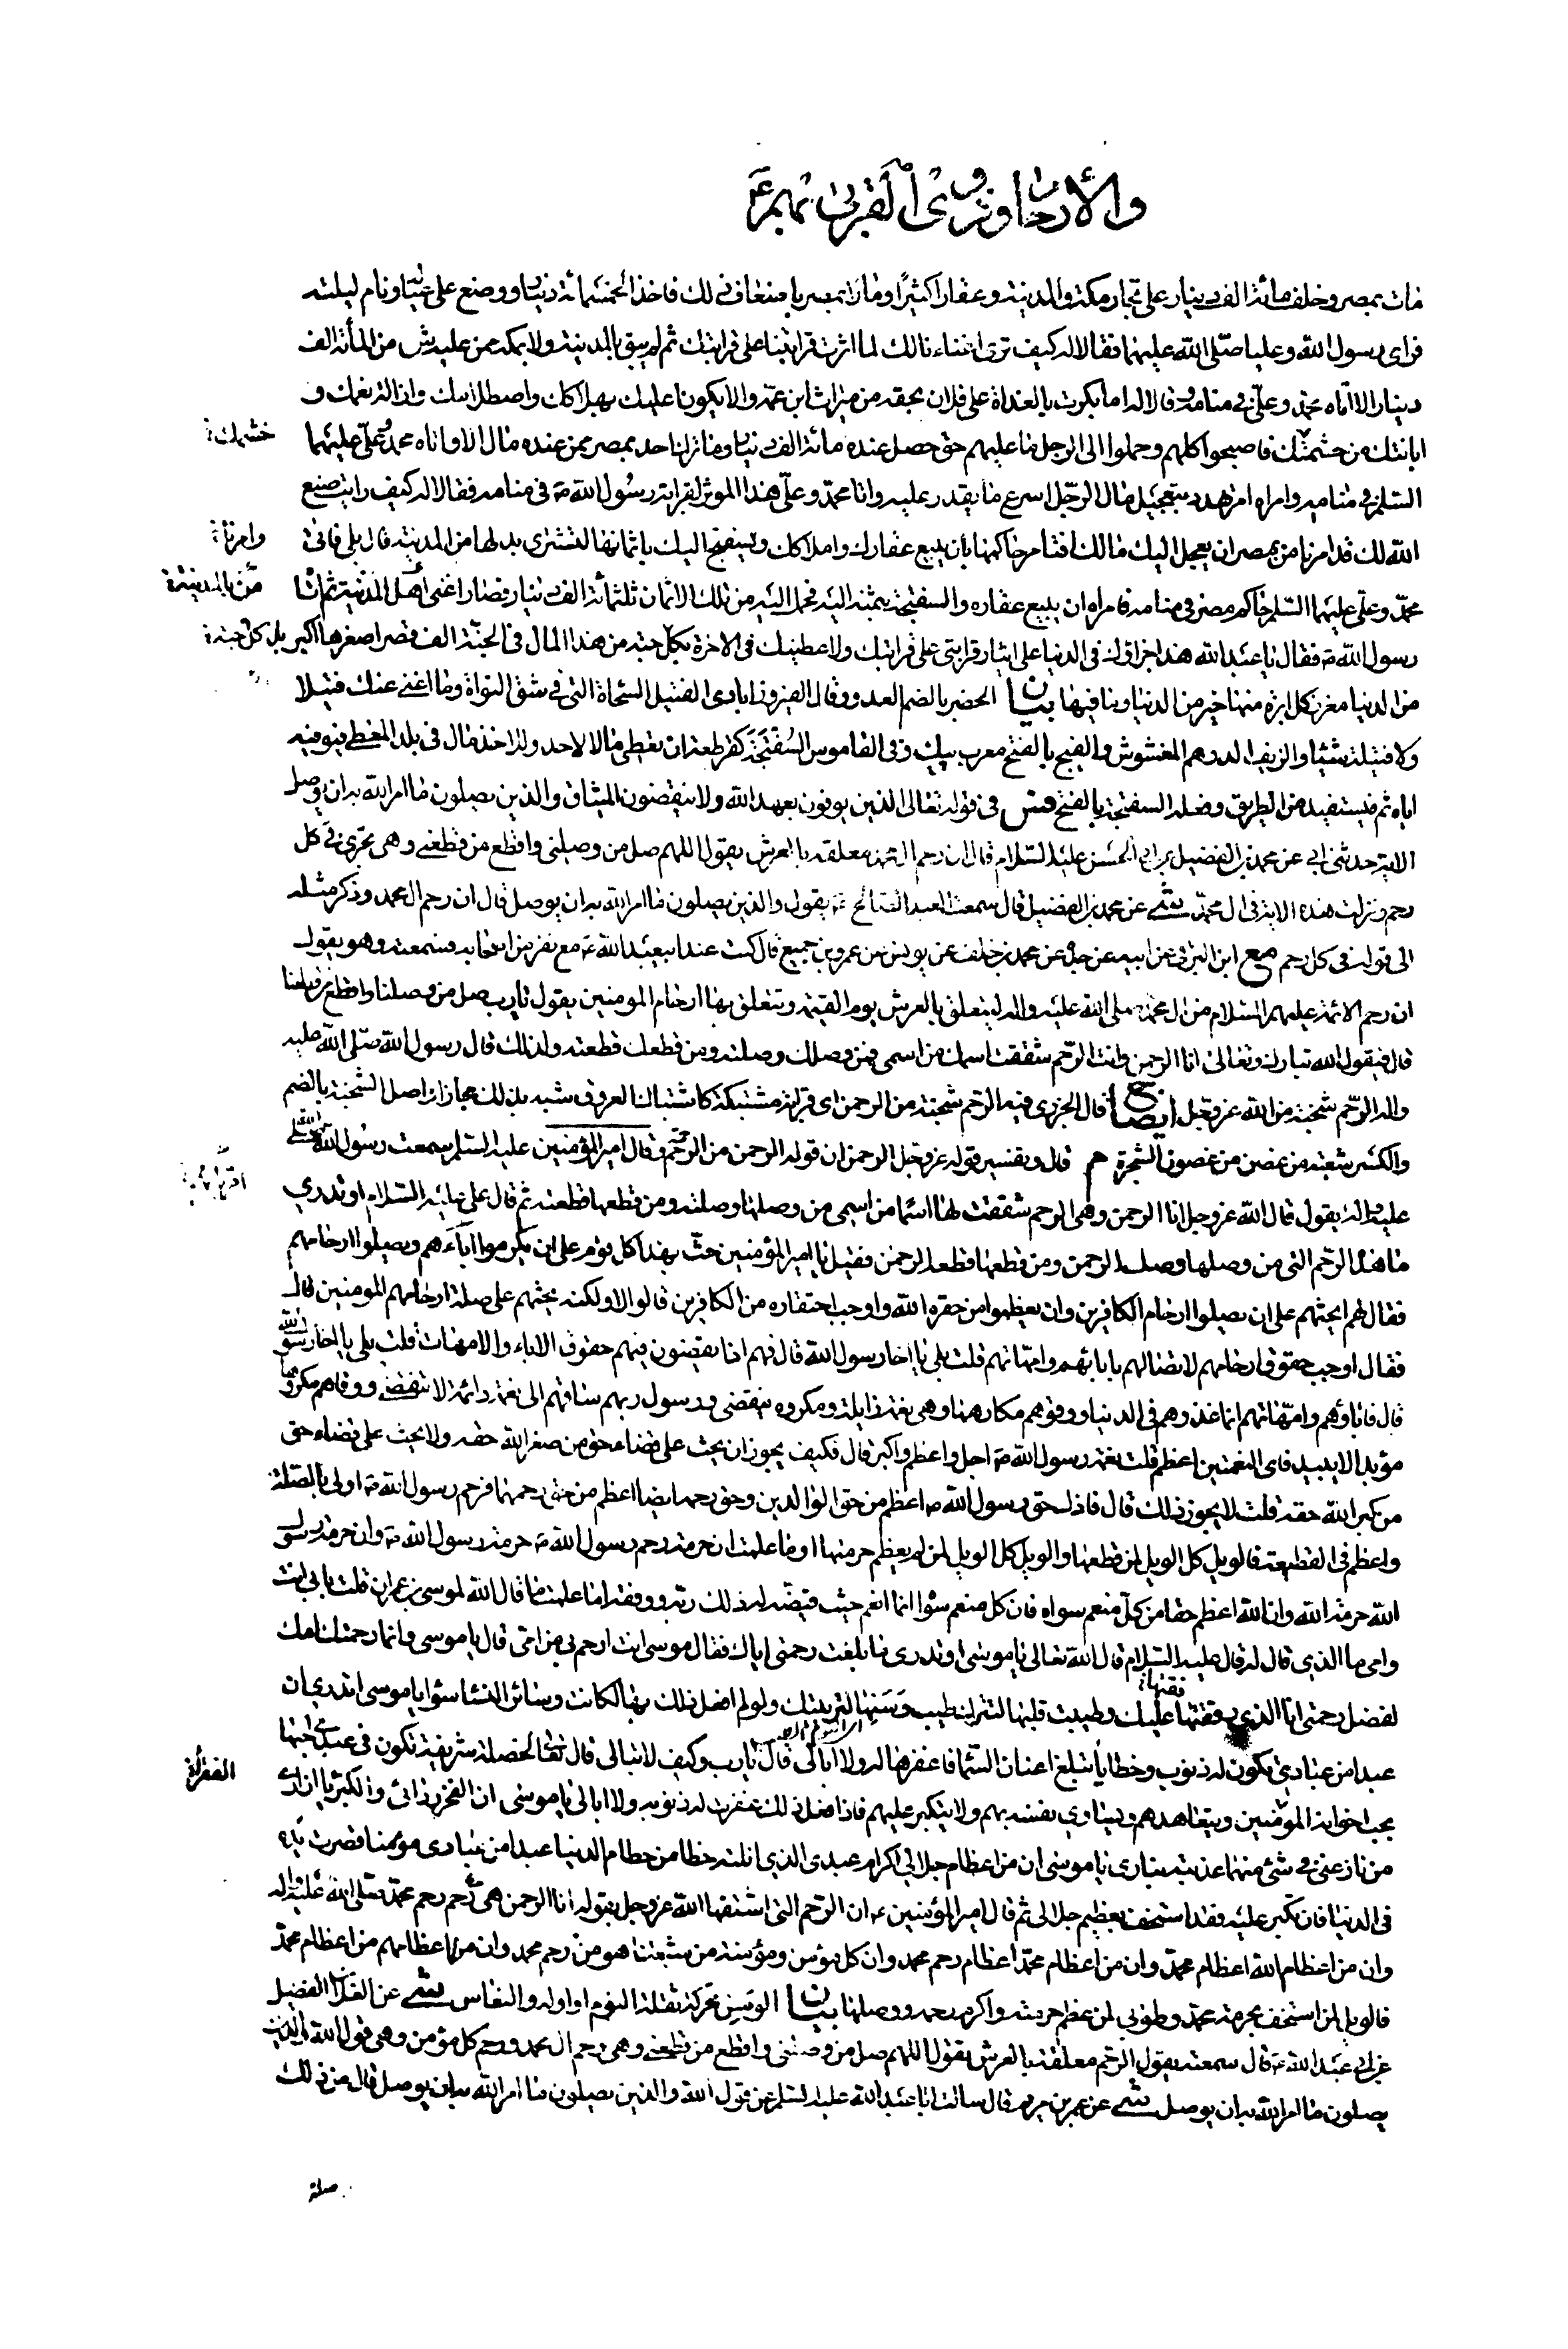 والأرحام وذوي القربى نهم ع
مات بمصر وخلف مائة الف دينار على تجار مكة والمدينة وعقارا كثيرًا ومالا بمصر باضعاف ذلك فاخذ الخمسمائة دينار ووضع على عياله ونام ليلته
فراى رسول الله وعليا صلى الله عليهما فقالا له كيف ترى اغناءنا لك لما اثرت قرابتنا على قرابتك ثم لم يبق بالمدينة ولا بمكة ممن عليه شيء من المأة الف
دينار الا اتاه محمد وعلي في منامه وقالا له اما بكرت بالغداة على فلان بحقه من ميراث ابن عمه والا بكرنا عليك بهلاكك واصطلامك وازالة نعمك و
ابانتك من حشمتك فاصبحوا كلهم وحملوا الى الرجل ما عليهم حتى حصل عنده مائة الف دينار وما ترك احد بمصر ممن عنده مال الا واتاه محمد وعلي عليهما
حشمك
السلم في منامه وامراه امر تهدد بتعجيل مال الرجل اسرع ما يقدر عليه واتا محمد وعلي هذا الموثر لقرابة رسول الله ص في منامه فقالا له كيف رايت صنع
الله لك قد امرنا من بمصر ان يعجل اليك مالك افنامر حاكمها بأن يبيع عقارك واملاكك ويسفتج اليك باثمانها لتشترى بدلها من المدينة قال بلى فاتى
وامرنا
محمد وعلي عليهما السلم حاكم مصر في منامه فامراه ان يبيع عقاره والسفتجة بثمنه اليه فحمل اليه من تلك الاثمان ثلثمائة الف دينار فصار اغنى اهل المدينة ثم اتا
من بالمدينة
رسول الله ص فقال يا عبد الله هذا جزاؤك في الدنيا على ايثار قرابتي على قرابتك ولاعطينك في الاخرة بكل حبة من هذا المال في الجنة الف قصر اصغرها اكبر
بدل كل حبة
من الدنيا مغرز كل ابرة منها خير من الدنيا وما فيها بيان الحضر بالضم العدو وقال الفيروزابادى الفتيل السحاة التى في شق النواة وما اغنى عنك فتيلا
ولا فتيلة شيئا والزيف الدرهم المغشوش والفيج بالفتح معرب بيك وفي القاموس السُفتَجَة كقرطعة ان تعطى مالا لاحد ولأخذ مال في بلد المعطي فيوفيه
اياه ثم فيستفيد من الطريق وفعله السفتجة بالفتح فس في قوله تعالى الذين يوفون بعهد الله ولا ينقضون الميثاق والذين يصلون ما امر الله به ان يوصل
الاية حدثني ابي عن محمد بن الفضيل عن ابي الحسن عليه السلام قال ان رحم ال محمد معلقة بالعرش يقول اللهم صل من وصلنى واقطع من قطعنى وهى تجرى في كل
رحم ونزلت هذه الاية في ال محمد شى عن محمد بن الفضيل قال سمعت العبد الصالح ع يقول والذين يصلون ما امر الله به ان يوصل قال ان رحم ال محمد وذكر مثله
الى قوله في كل رحم مع ابن البرقي عن ابيه عن جده عن محمد بن خلف عن يونس عن عمرو بن جميع قال كنت عند ابيعبد الله ع مع نفر من اصحابه فسمعته وهو يقول
ان رحم الائمة عليهم السلام من ال محمد صلى الله عليه واله ليتعلق بالعرش يوم القيمة وتتعلق بها ارحام المومنين يقول يا رب صل من وصلنا واقطع من قطعنا
قال فيقول الله تبارك وتعالى انا الرحمن وانت الرحم شققت اسمك من اسمى فمن وصلك وصلته ومن قطعك قطعته ولذلك قال رسول الله صلى الله عليه
واله الرحم شجنة من الله عز وجل ايضاح قال الجزرى فيه الرحم شجنة من الرحمن اى قرابة مشتبكة كاشتباك العروق شبه بذلك مجازا واصل الشجنة بالضم
والكسر شعبة من غصن من غصون الشجرة م قال وتفسير قوله عز وجل الرحمن ان قوله الرحمن من الرحمة وقال امير المؤمنين عليه السلم سمعت رسول الله صلى الله
عليه واله يقول قال الله عز وجل انا الرحمن وهى الرحم شققت لها اسما من اسمى من وصلها وصلته ومن قطعها قطعته ثم قال علي عليه السلام اوتدري
ما هذه الرحم التى من وصلها وصله الرحمن ومن قطعها قطعه الرحمن فقيل يا امير المؤمنين حث بهذا كل قوم على ان يكرموا آباءهم ويصلوا ارحامهم
فقال لهم ايحثهم على ان يصلوا ارحام الكافرين وان يعظموا من حقره الله واوجب احتقاره من الكافرين قالوا لا ولكنه يحثهم على صلة ارحامهم المومنين قال
فقال اوجب حقوق ارحامهم لاتصالهم بابائهم وامهاتهم قلت بلى يا اخا رسول الله قال فهم اذا يقضون فيهم حقوق الاباء والامهات قلت بلى يا اخا رسول الله
قال فاباؤهم وامهاتهم انما غذوهم في الدنيا ووقوهم مكارهها وهى نعمة زايلة ومكروه ينقضي ورسول ربهم ساقهم الى نعمة دائمة لا تنقضى ووقاهم مكروها
مؤبدا لا يبيد فاى النعمتين اعظم قلت نعمة رسول الله ص اجل واعظم واكبر قال فكيف يجوز ان يحث على قضاء حق من صغر الله حقه ولا يحث على قضاء حق
من كبر الله حقه قلت لا يجوز ذلك قال فاذا حق رسول الله ص اعظم من حق الوالدين وحق رحمه ايضا اعظم من حق رحمهما فرحم رسول الله ص اولى بالصلة
واعظم في القطيعة فالويل كل الويل لمن قطعها والويل كل الويل لمن لم يعظم حرمتها اوما علمت ان حرمة رحم رسول الله ص حرمة رسول الله ص وان حرمة رسول
الله حرمة الله وان الله اعظم حقا من كل منعم سواه فان كل منعم سواه انما انعم حيث قيضه له ذلك ربه ووفقه اما علمت ما قال الله لموسى بن عمران قلت بابي انت
وامي ما الذي قال له قال عليه السلام قال الله تعالى يا موسى اوتدرى ما بلغت رحمتى اياك فقال موسى انت ارحم بي من امى قال يا موسى وانما رحمتك امك
لفضل رحمتى انا الذى رققتها عليك وطيبت قلبها لتترك طيب وَسَنِها لتربيتك ولو لم افعل ذلك بها لكانت وسائر النسا سواء يا موسى اتدرى ان
عبدا من عبادي يكون له ذنوب وخطايا تبلغ اعنان السما فاغفرها له ولا ابالى قال يا رب وكيف لا تبالى قال تعالى لخصلة شريفة تكون في عبدى احبها
يحب اخوانه المؤمنين ويتعاهدهم ويساوي نفسه بهم ولا يتكبر عليهم فاذا فعل ذلك غفرت له ذنوبه ولا ابالى يا موسى ان الفخر ردائى والكبرياء ازارى
الفقراء
من نازعنى في شئ منهما عذبته بنارى يا موسى ان من اعظام جلالى اكرام عبدى الذي انلته حظا من حطام الدنيا عبدا من عبادى مؤمنا قصرت يده
في الدنيا فان تكبر عليه فقد استخف بعظيم جلالى ثم قال امير المؤمنين ع ان الرحم التى اشتقها الله عز وجل بقوله انا الرحمن هى رحم محمد صلى الله عليه واله
وان من اعظام الله اعظام محمد وان من اعظام محمد اعظام رحم محمد وان كل مؤمن ومؤمنة من شيعتنا هو من رحم محمد وان من اعظامهم من اعظام محمد
فالويل لمن استخف بحرمة محمد وطوبى لمن عظم حرمته واكرم رحمه ووصلها بيان الوسن محركة ثقلة النوم او اوله والنعاس شى عن العلا الفضيل
عن ابي عبد الله ع قال سمعته يقول الرحم معلقة بالعرش يقول اللهم صل من وصلنى واقطع من قطعنى وهى رحم ال محمد ورحم كل مؤمن وهى قول الله والذين
يصلون ما امر الله به ان يوصل شى عن عمر بن مريم قال سالت ابا عبد الله عليه السلم عن قول الله والذين يصلون ما امر الله به ان يوصل قال من ذلك
صلة